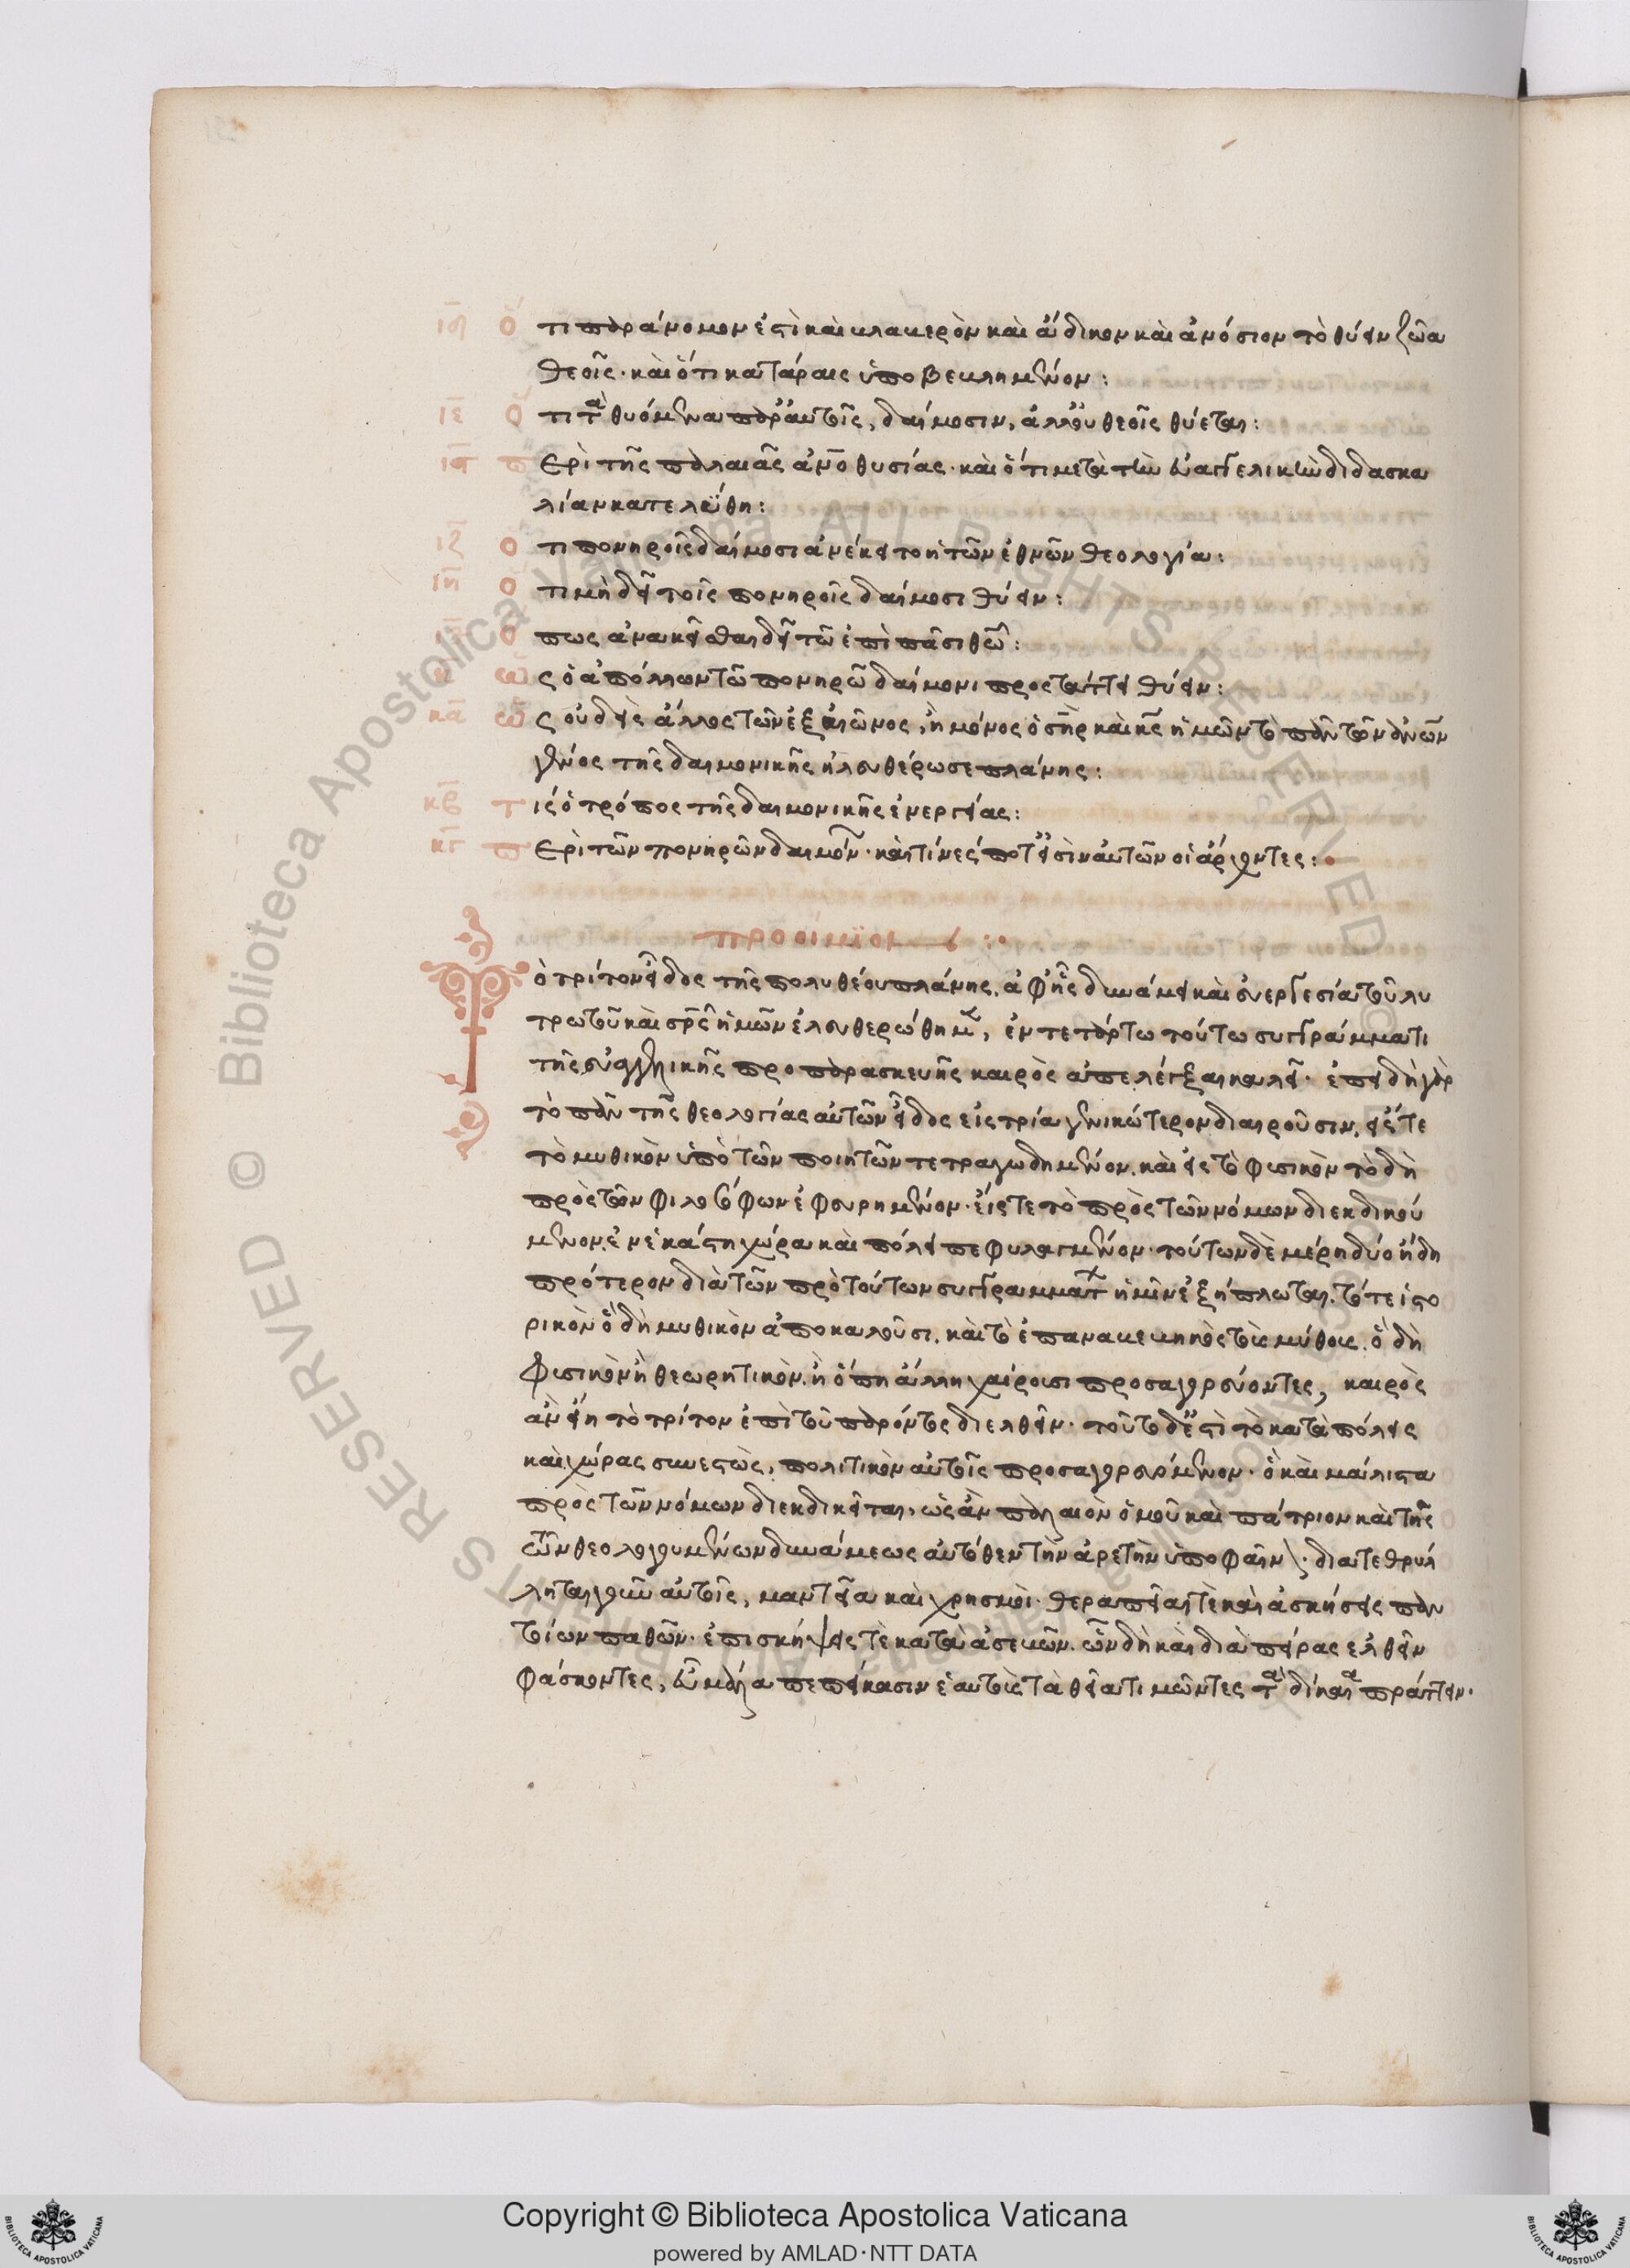 ιδ Ὅτι παράνομόν ἐστι καὶ μιαρὸν καὶ ἄδικον καὶ ἀνόσιον τὸ θύειν ζῶα
θεοῖς· καὶ ὅτι κατάραις ὑποβεβλημένον:
ιε Ὅτι τὰ θυόμενα παρ' αὐτοῖς, δαίμοσιν, ἀλλ' οὐ θεοῖς θύεται:
ις Περὶ τῆς παλαιᾶς ἀνῶν θυσίας· καὶ ὅτι μετὰ τὴν εὐαγγελικὴν διδασκα
λίαν κατελύθη:
ιζ Ὅτι πονηροῖς δαίμοσι ἀνέκειτο ἡ τῶν ἐθνῶν θεολογία:
ιη Ὅτι μὴ δεῖ τοῖς πονηροῖς δαίμοσι θύειν:
ιθ Ὅπως ἀνακεῖσθαι δεῖ τῶ ἐπὶ πᾶσι θεῶ:
κ Ὡς ὁ ἀπόλλων τῶ πονηρῶ δαίμονι προστάττει θύειν:
κα Ὡς οὐδεὶς ἄλλος τῶν ἐξ αἰῶνος, ἢ μόνος ὁ σηρ καὶ κς ἡμῶν τὸ πᾶν τῶν ἀνων
γένος τῆς δαιμονικῆς ἠλευθέρωσε πλάνης:
κβ Τίς ὁ τρόπος τῆς δαιμονικῆς ἐνεργείας:
κγ Περὶ τῶν πονηρῶν δαιμόνων· καὶ τίνες ποτ' εἰσὶν αὐτῶν οἱ ἄρχοντες:
προοίμιον:
Τὸ τρίτον εἶδος τῆς πολυθέου πλάνης, ἀφ' ἧς δυνάμει καὶ εὐεργεσία τοῦ λυ
τρωτοῦ καὶ σρς ἡμῶν ἐλευθερώθημεν, ἐν τετάρτω τούτω συγγράμματι
τῆς εὐαγγελικῆς προπαρασκευῆς καιρὸς ἀπελέγξαι καλεῖ· ἐπειδὴ γὰρ
τὸ πᾶν τῆς θεολογίας αὐτῶν εἶδος εἰς τρία γενικώτερον διαιροῦσιν, εἴς τε
τὸ μυθικὸν ὑπὸ τῶν ποιητῶν τετραγωδημένον, καὶ εἰς τὸ φυσικὸν τὸ δὴ
πρὸς τῶν φιλοσόφων ἐφευρημένον· εἴς τε τὸ πρὸς τῶν νόμων διεκδικού
μενον, ἐν ἑκάστη χώρα καὶ πόλει πεφυλαγμένον· τούτων δὲ μέρη δύο ἤδη
πρότερον διὰ τῶν πρὸ τούτων συγγραμμάτων ἡμῖν ἐξήπλωται. τό τε ἱστο
ρικὸν ὃ δὴ μυθικὸν ἀποκαλοῦσι, καὶ τὸ ἐπαναβεβηκὸς τοὺς μύθους. ὃ δὴ
φυσικὸν ἢ θεωρητικὸν, ἢ ὅπη ἄλλη χαίρουσι προσαγορεύοντες, καιρὸς
ἂν εἴη τὸ τρίτον ἐπὶ τοῦ παρόντος διελθεῖν· τοῦτο δ' ἐστὶ τὸ κατὰ πόλεις
καὶ χώρας συνεστὼς, πολιτικὸν αὐτοῖς προσαγορευόμενον· ὃ καὶ μάλιστα
πρὸς τῶν νόμων διεκδικεῖται, ὡς ἂν παλαιὸν ὁμοῦ καὶ πάτριον καὶ τῆς
τῶν θεολογουμένων δυνάμεως αὐτόθεν τὴν ἀρετὴν ὑποφαῖνον· διατεθρύλ
ληται γοῦν αὐτοῖς, μαντεῖα καὶ χρησμοί· θεραπεῖαι τὲ καὶ ἀσκήσεις παν
τοίων παθῶν· ἐπισκήψεις τὲ κατὰ ἀσεβῶν. ὧν δὴ καὶ διὰ πείρας ἐλθεῖν
φάσκοντες, εὖ μάλα πεπείκασιν ἑαυτοὺς τὰ θεῖα τιμῶντες τὰ δίκαια πράττειν·
Copyright © Biblioteca Apostolica Vaticana
powered by AMLAD·NTT DATA